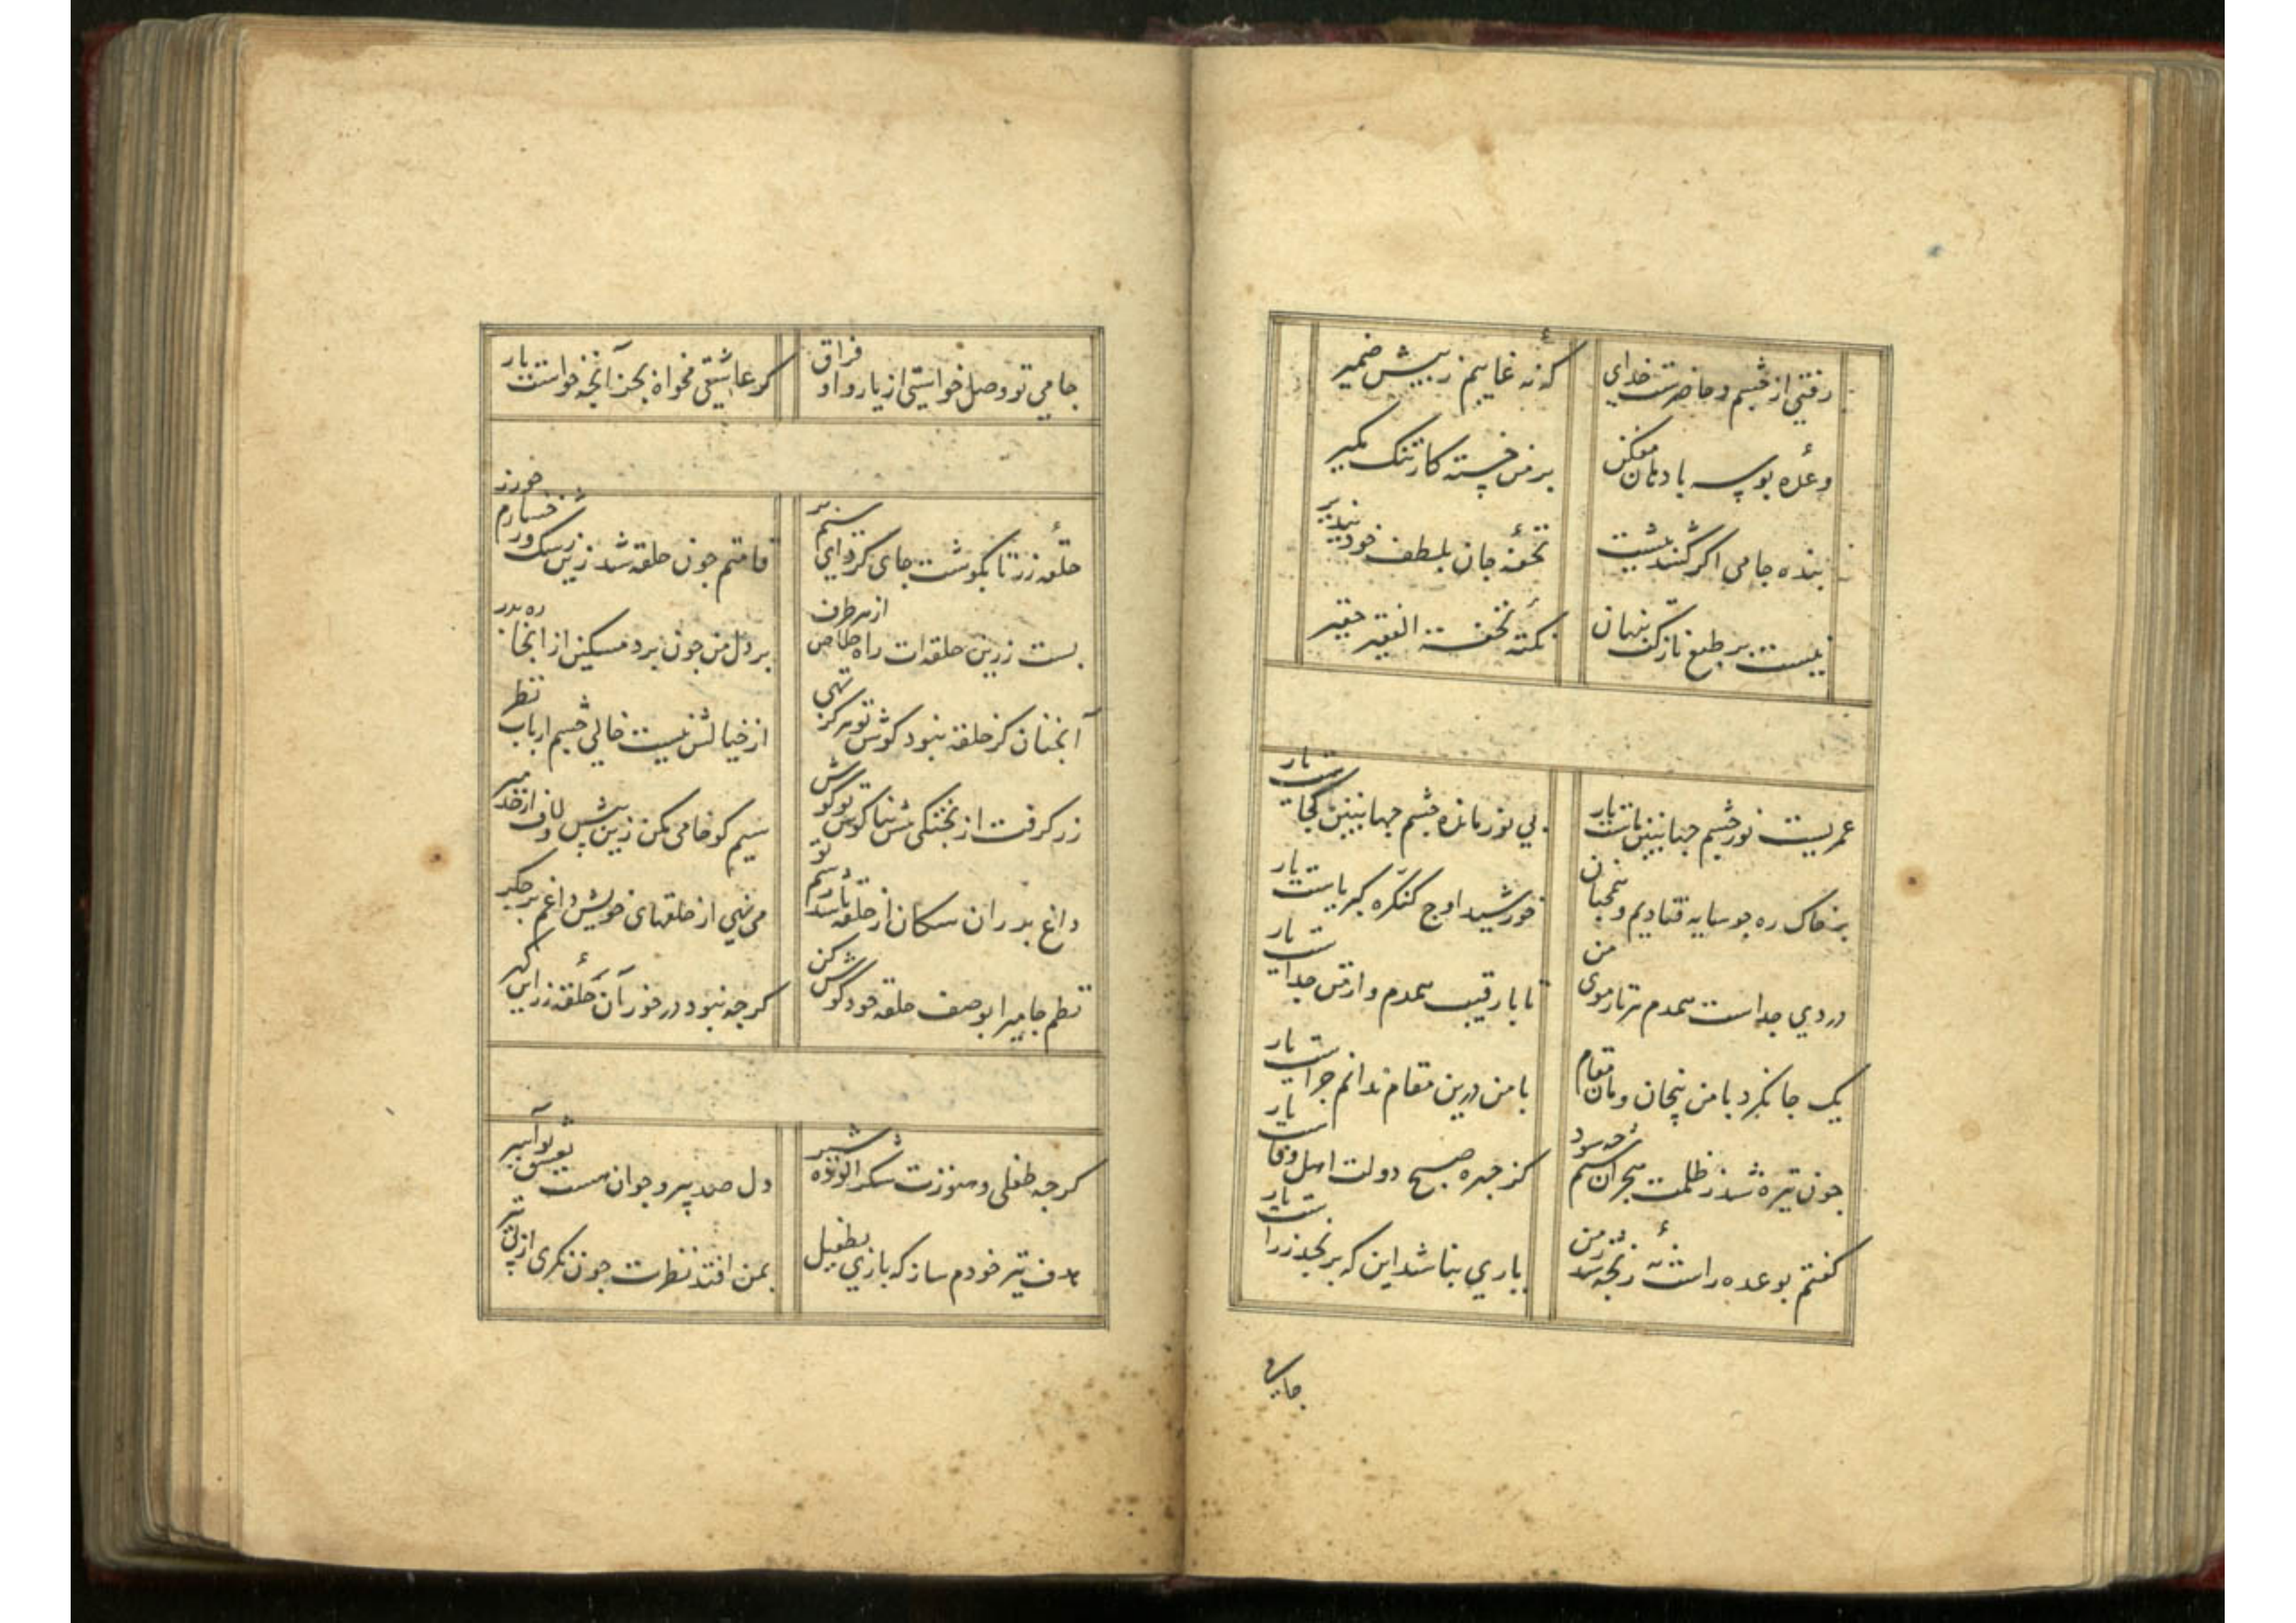 رفتی از چشم و حاضرست خدای که نه غایبم ز پیش ضمیر
وعده بوسه با دهان مفکن بر من خسته کار تنک مکیر
بنده جامی اکر کشد پیشت تحفه جان بلطف خود بپذیر
نیست بر طبع نازکت پنهان نکته تحفة الفقیر حقیر
عمریست نور چشم جهان بین ماست یار بی نور مانده چشم جهان بین کجاست یار
بر خاک ره چو سایه فتادیم و همچنان خورشید اوج کنکره کبریاست یار
دردی جداست همدم هر تار موی من تا با رقیب همدم و از من جداست یار
یک جا نکرد با من بیخان و مان مقام با من درین مقام ندانم چراست یار
چون تیره شد ز ظلمت هجران شبم چه سود کز چهره صبح دولت اهل وفاست یار
کفتم بوعده راست نه رنجه شد ز من باری نباشد این که برنجد ز راست یار
جامی
جامی تو وصل خواستی از یار و او فراق کر عاشقی مخواه بجز آنچه خواست یار
حلقه زر تا بکوشت جای کرد ای سیمبر قامتم چون حلقه شد زین رشک و رخسارم چو زر
بست زرین حلقه ات راه خلاص از هر طرف بر دل من چون برد مسکین از اینجا ره بدر
آنچنان کز حلقه نبود کوش تو هرکز تهی از خیالش نیست خالی چشم ارباب نظر
زر کرفت از پختکی پیش بناکوش تو کوش سیم کو خامی مکن زین پیش و لاف از خد مبر
داغ بد ران سکان از حلقه باشد رسم تو می نهی از حلقهای خویش داغم بر جکر
نظم جامی را بوصف حلقه خود کوش کن کرچه نبود در خور آن حلقه زر این کهر
کرچه طفلی و هنوزت شکر الوده شیر دل صد پیر و جوان هست بعشق تو اسیر
هدف تیر خودم ساز که باری بطفیل بمن افتد نظرت چون نکری از پی تیر